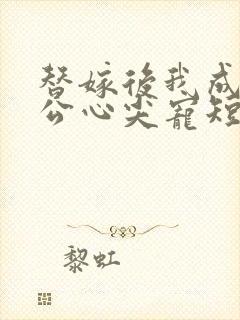 替嫁後我成
公心尖寵短
黎虹